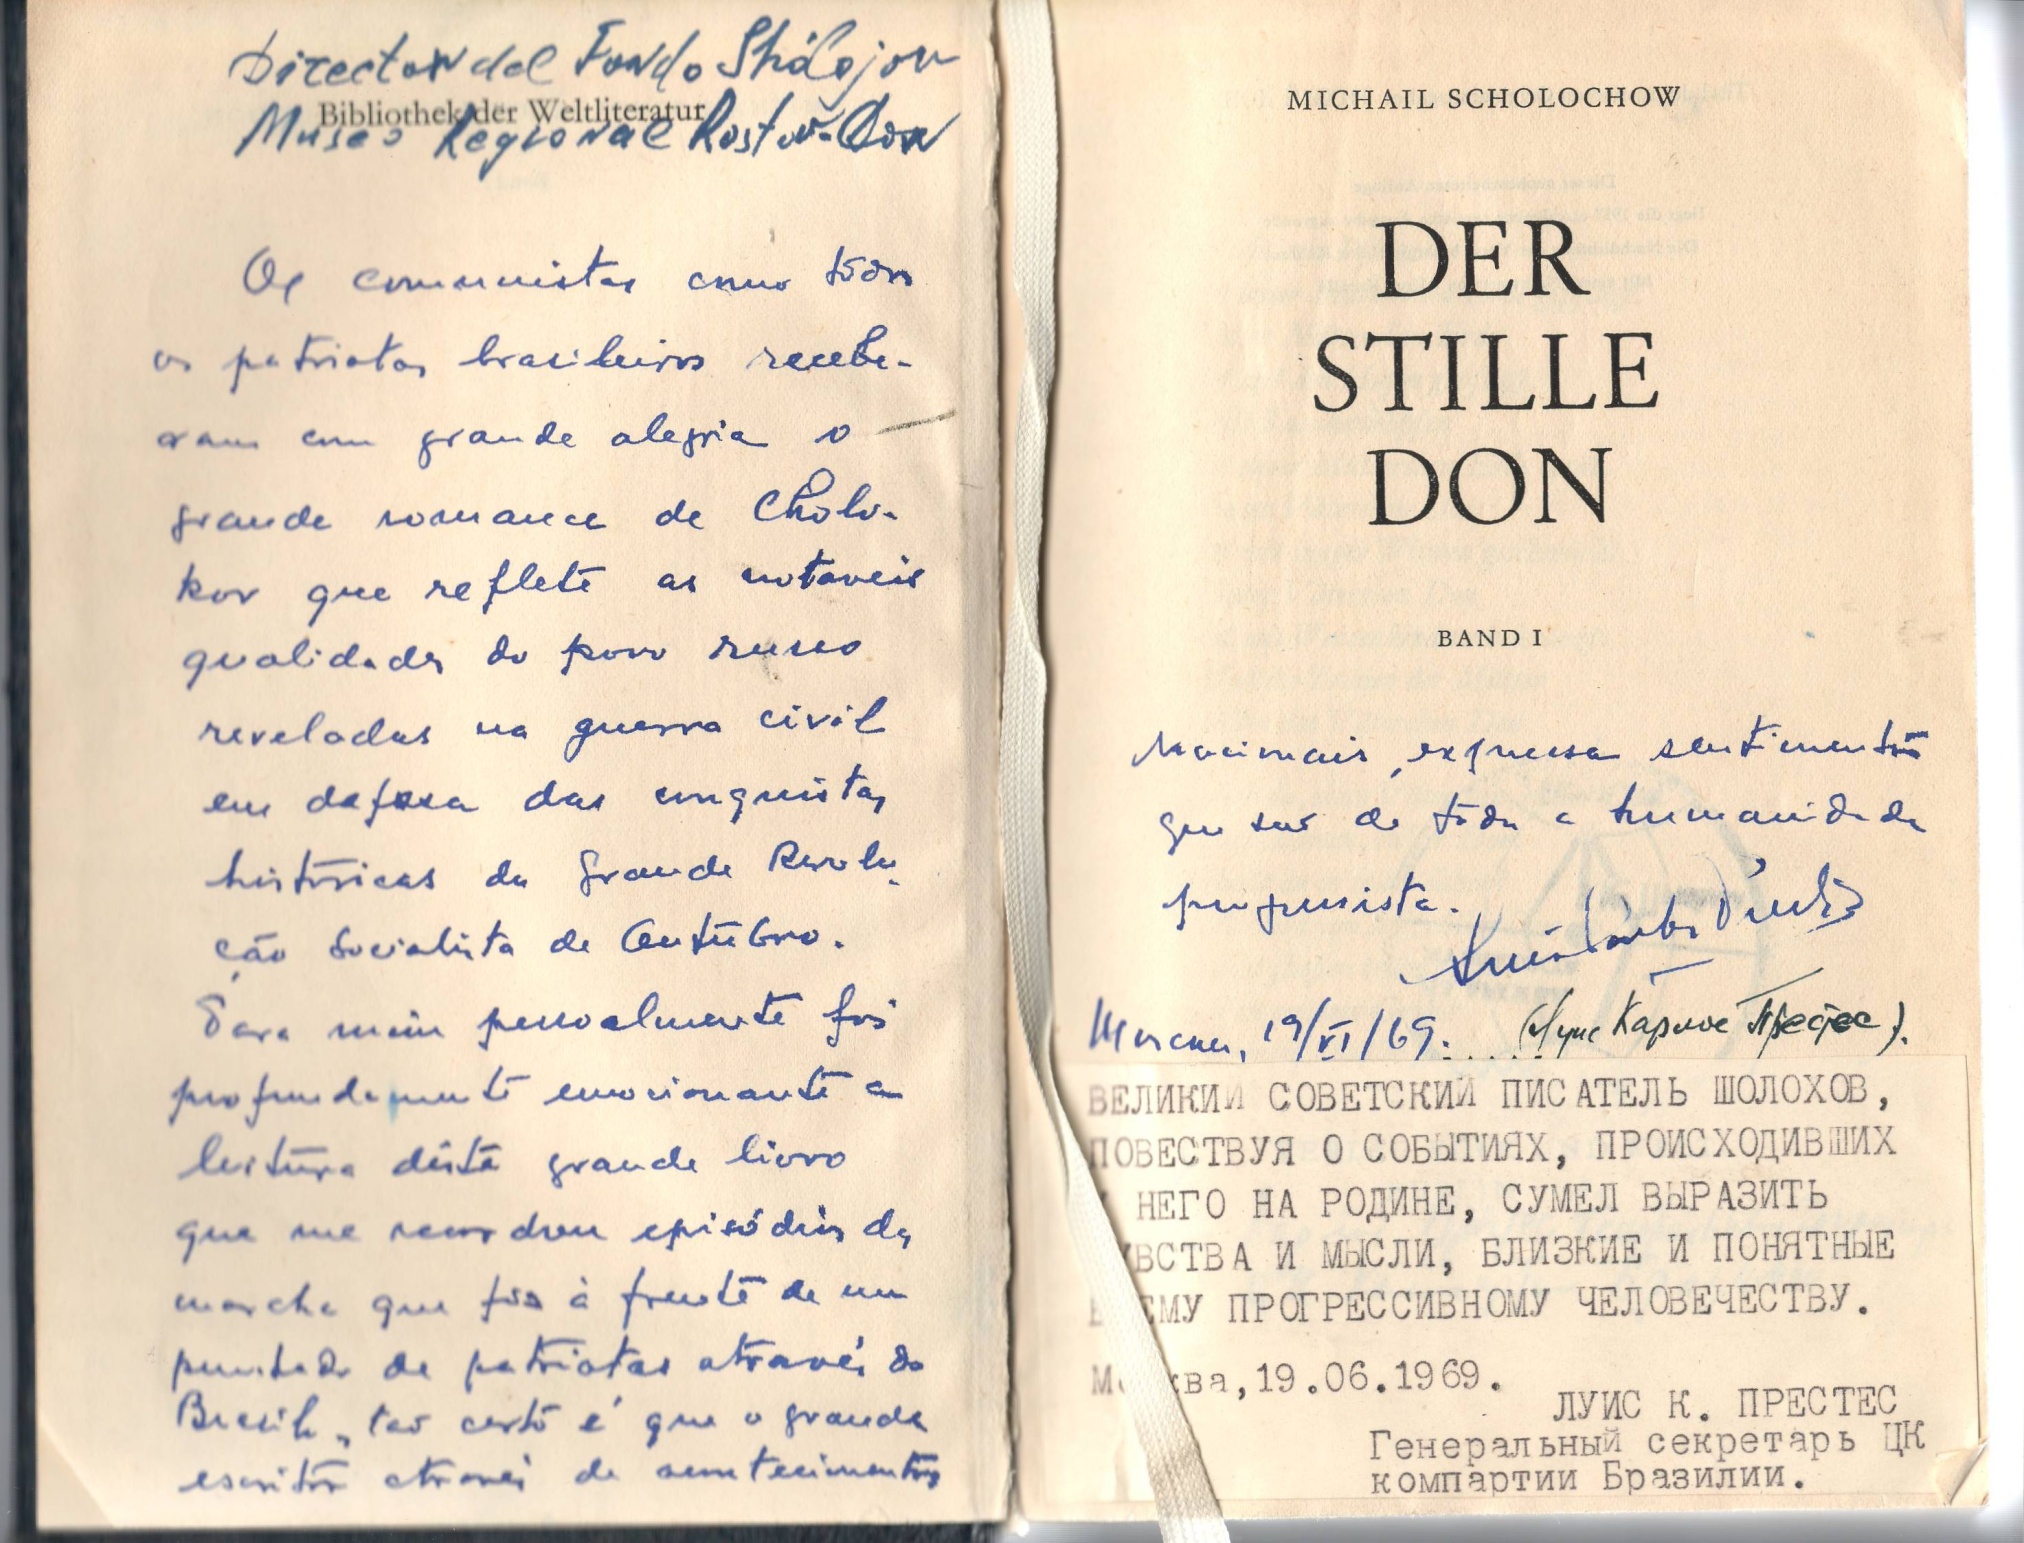 Director del Fondo Shólojov
Bibliothek der Weltliteratur
Museo Regional Rostov-Don
Os communistas como todos
os patriotas brasileiros recebe-
ram com grande alegria o
grande romance de Cholo-
kov que reflete as notaveis
qualidades do povo russo
reveladas na guerra civil
em defesa das conquistas
históricas da Grande Revolu-
ção Socialista de Outubro.
Para mim pessoalmente foi
profundamente emocionante a
leitura dêste grande livro
que me recordou episódios da
marcha que fiz à frente de um
punhado de patriotas através do
Brasil, tão certo é que o grande
escritor através de acontecimentos
MICHAIL SCHOLOCHOW
DER
STILLE
DON
BAND I
nacionais, expressa sentimentos
que são de toda a humanidade
progressista.
Luiz Carlos Prestes
Москва, 19/VI/69. (Луис Карлос Престес).
ВЕЛИКИЙ СОВЕТСКИЙ ПИСАТЕЛЬ ШОЛОХОВ,
ПОВЕСТВУЯ О СОБЫТИЯХ, ПРОИСХОДИВШИХ
НЕГО НА РОДИНЕ, СУМЕЛ ВЫРАЗИТЬ
ЧУВСТВА И МЫСЛИ, БЛИЗКИЕ И ПОНЯТНЫЕ
ВСЕМУ ПРОГРЕССИВНОМУ ЧЕЛОВЕЧЕСТВУ.
Москва, 19.06.1969.
ЛУИС К. ПРЕСТЕС
Генеральный секретарь ЦК
компартии Бразилии.